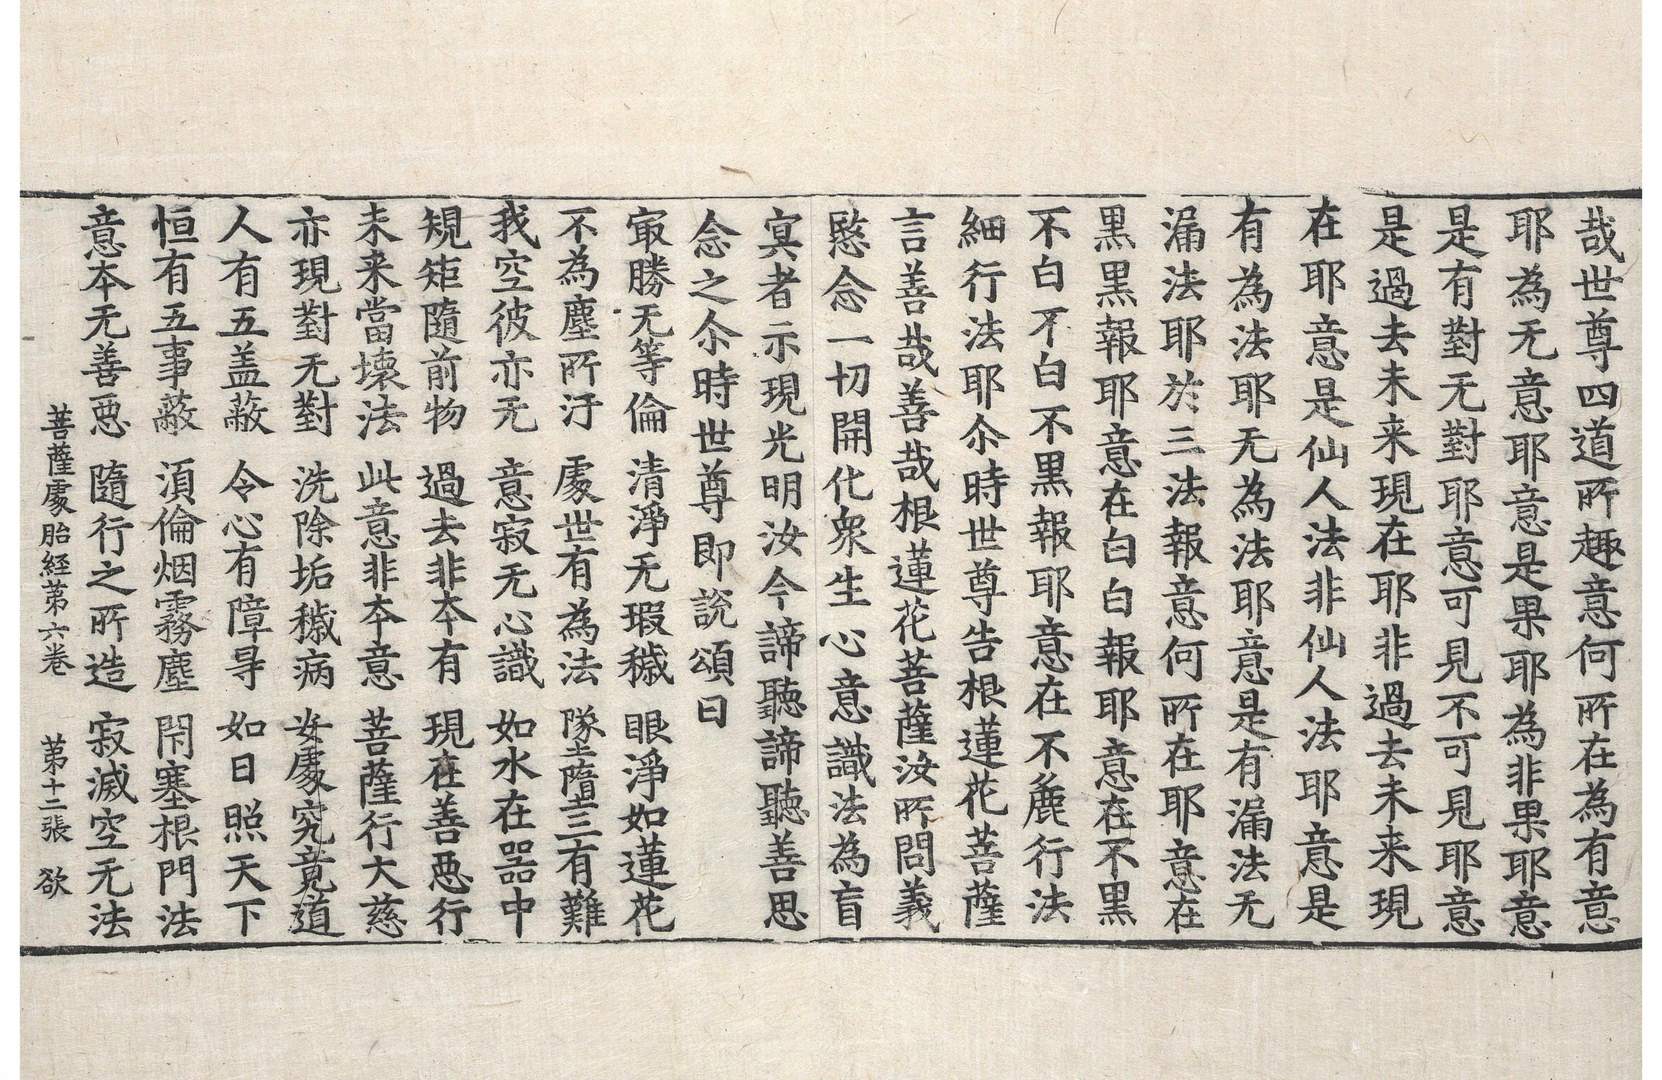 哉世尊四道所趣意何所在為有意
耶為无意耶意是果耶為非果耶意
是有對无對耶意可見不可見耶意
是過去未来現在耶非過去未来現
在耶意是仙人法非仙人法耶意是
有為法耶无為法耶意是有漏法无
漏法耶於三法報意何所在耶意在
黒黒報耶意在白白報耶意在不黒
不白不白不黒報耶意在不麁行法
細行法耶尒時世尊告根蓮花菩薩
言善哉善哉根蓮花菩薩汝所問義
愍念一切開化衆生心意識法為盲
冥者示現光明汝今諦聽諦聽善思
念之尒時世尊即說頌曰
㝡勝无等倫 清淨无瑕穢 眼淨如蓮花
不為塵所汙 處世有為法 墜墮三有難
我空彼亦无 意寂无心識 如水在器中
規矩隨前物 過去非本有 現在善惡行
未来當壞法 此意非本意 菩薩行大慈
亦現對无對 洗除垢穢病 安處究竟道
人有五盖蔽 令心有障㝵 如日照天下
恒有五事蔽 湏倫烟霧塵 閇塞根門法
意本无善惡 隨行之所造 寂滅空无法
菩薩處胎經苐六卷 苐十二張 欲